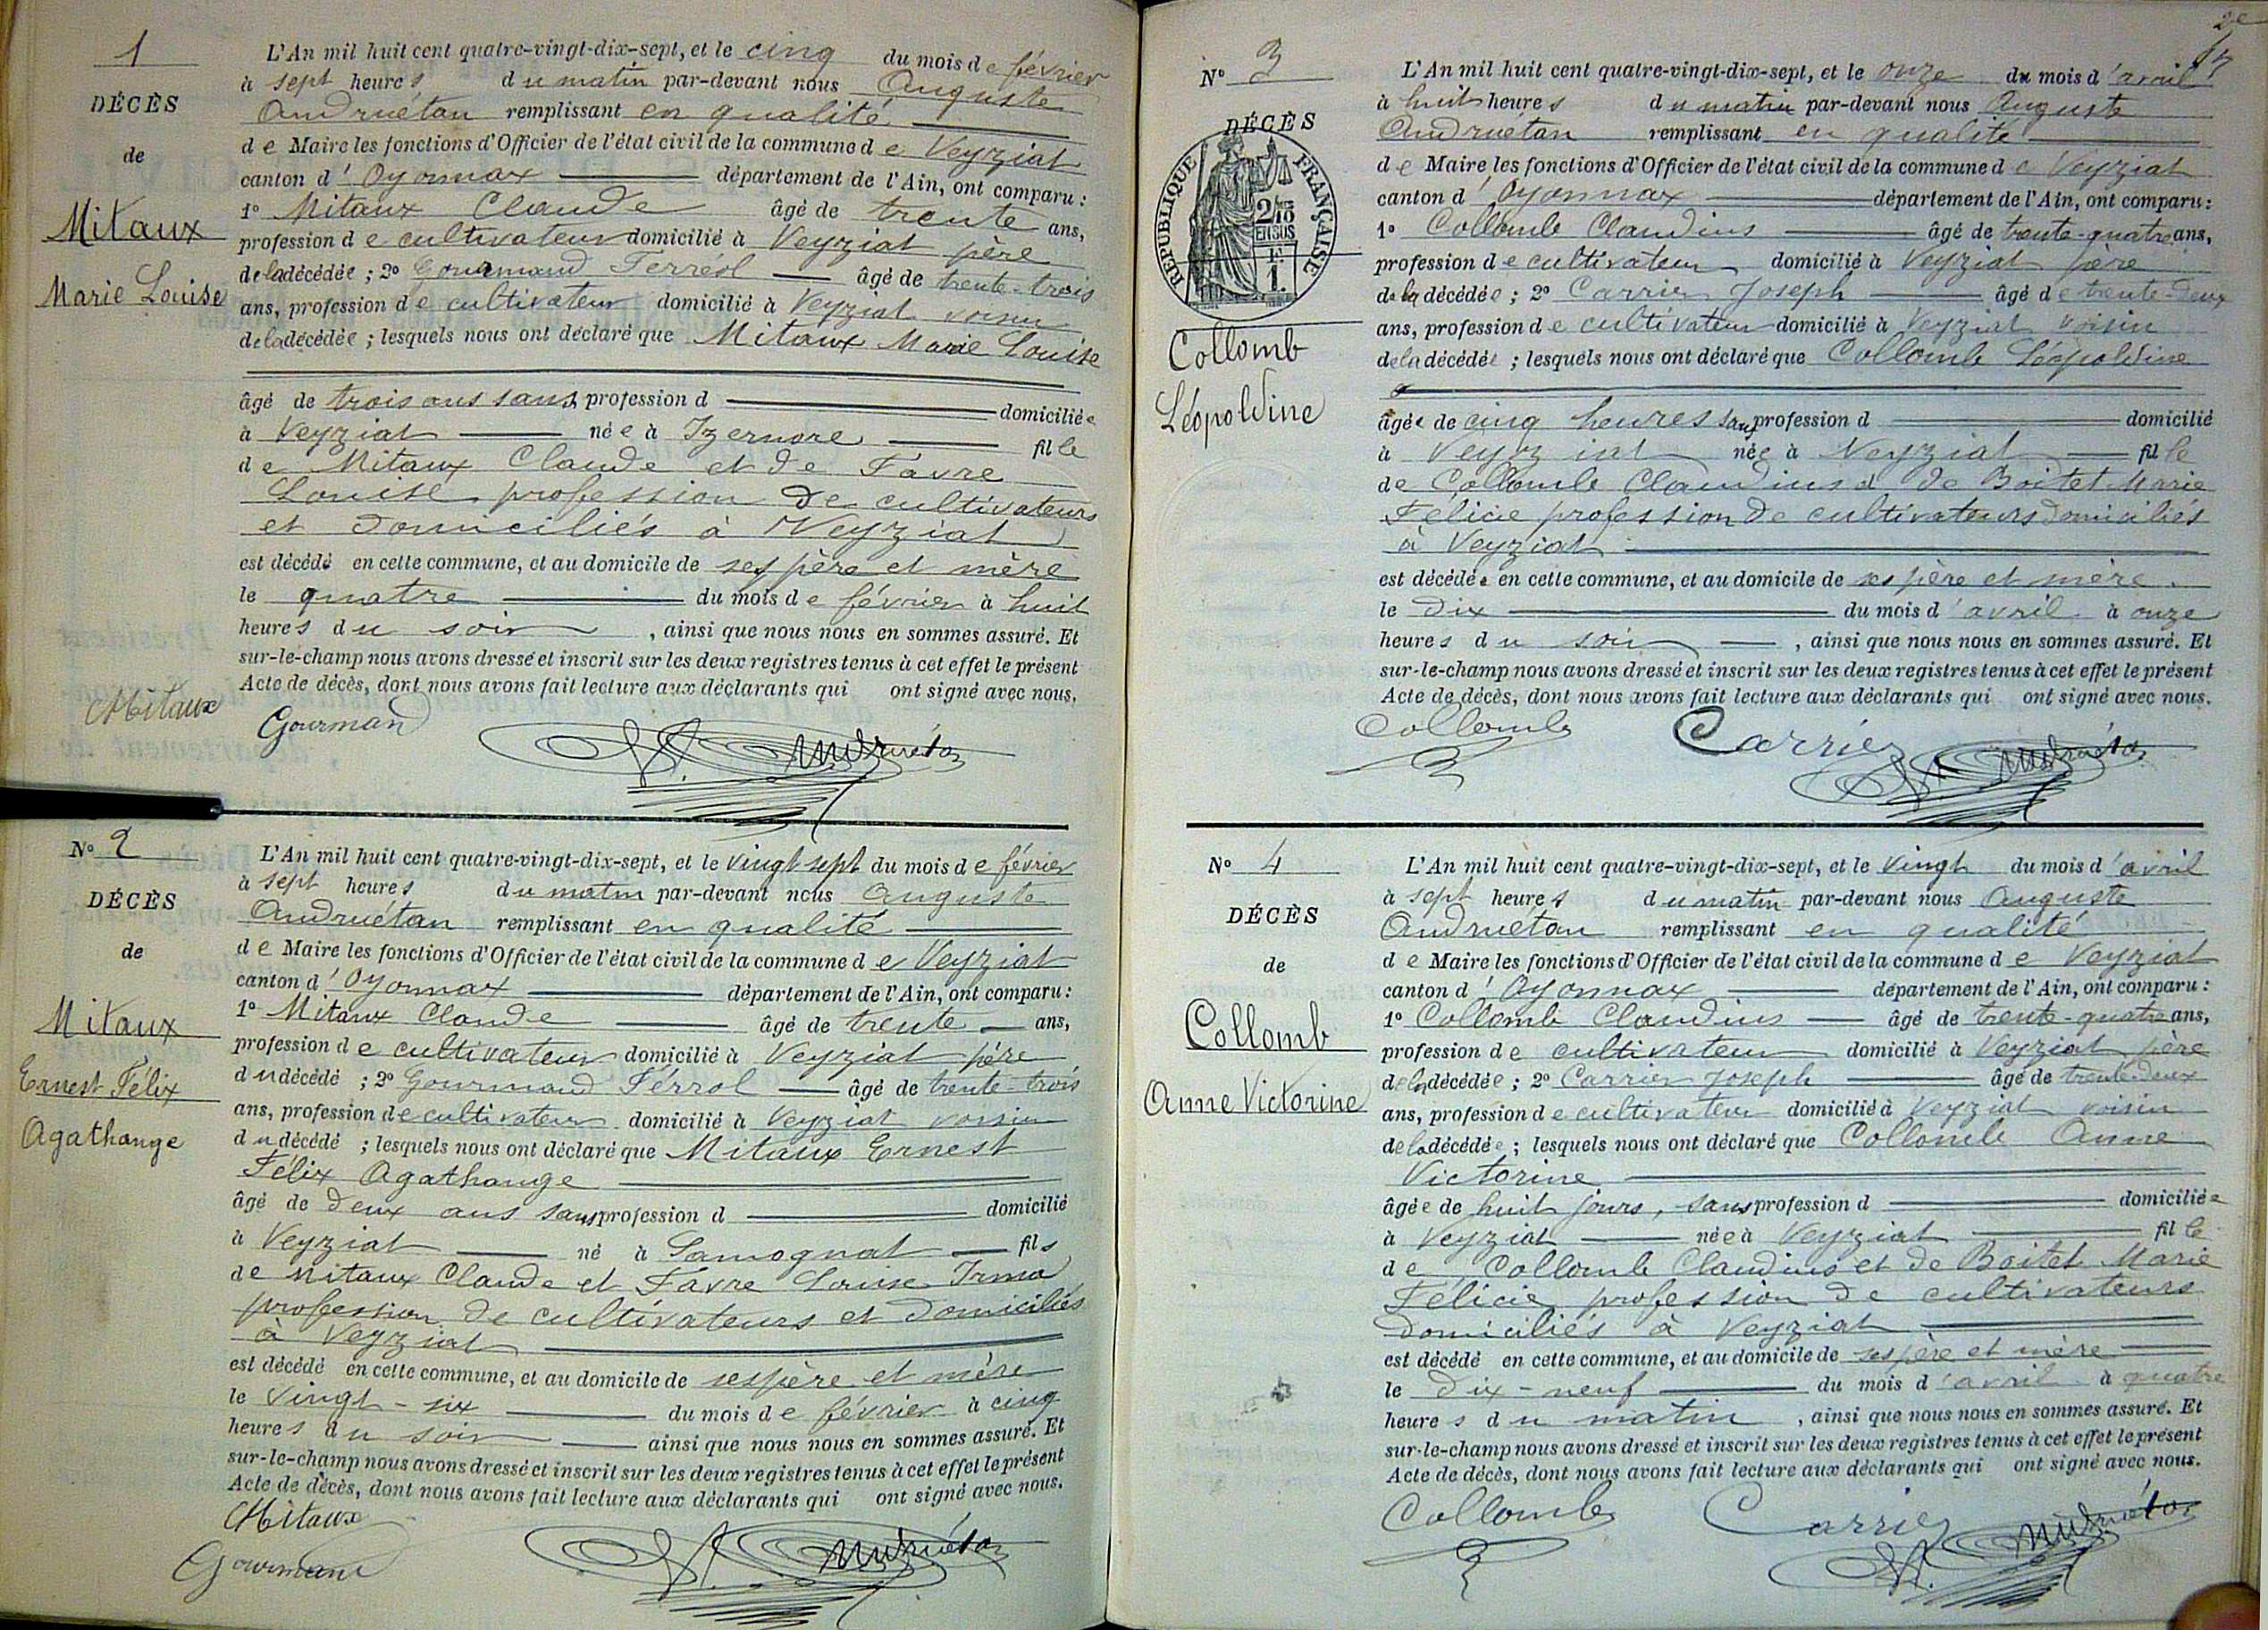 1
DÉCÈS
de
Mitaux
Marie Louise
L'An mil huit cent quatre-vingt-dix-sept, et le cinq du mois de février
à sept heures du matin par-devant nous Auguste
Andruétan remplissant en qualité
de Maire les fonctions d'Officier de l'état civil de la commune de Veyziat
canton d'Oyonnax département de l'Ain, ont comparu :
1º Mitaux Claude âgé de trente ans,
profession de cultivateur domicilié à Veyziat père
de la décédée ; 2º Gourmand Ferréol âgé de trente-trois
ans, profession de cultivateur domicilié à Veyziat voisin
de la décédée ; lesquels nous ont déclaré que Mitaux Marie Louise
âgé de trois ans sans profession d domiciliée
à Veyziat née à Izernore fille
de Mitaux Claude et de Favre
Louise profession de cultivateurs
et domiciliés à Veyziat
est décédé en cette commune, et au domicile de ses père et mère
le quatre du mois de février à huit
heures du soir , ainsi que nous nous en sommes assuré. Et
sur-le-champ nous avons dressé et inscrit sur les deux registres tenus à cet effet le présent
Acte de décès, dont nous avons fait lecture aux déclarants qui ont signé avec nous.
CMitaux
Gourmand
Andruétan
Nº 2
DÉCÈS
de
Mitaux
Ernest Félix
Agathange
L'An mil huit cent quatre-vingt-dix-sept, et le vingt sept du mois de février
à sept heures du matin par-devant nous Auguste
Andruétan remplissant en qualité
de Maire les fonctions d'Officier de l'état civil de la commune de Veyziat
canton d'Oyonnax département de l'Ain, ont comparu :
1º Mitaux Claude âgé de trente ans,
profession de cultivateur domicilié à Veyziat père
du décédé ; 2º Gourmand Férrol âgé de trente-trois
ans, profession de cultivateur domicilié à Veyziat voisin
du décédé ; lesquels nous ont déclaré que Mitaux Ernest
Félix Agathange
âgé de deux ans sans profession d domicilié
à Veyziat né à Samognat fils
de Mitaux Claude et Favre Louise Irma
profession de cultivateurs et domiciliés
à Veyziat
est décédé en cette commune, et au domicile de ses père et mère
le vingt-six du mois de février à cinq
heures du soir ainsi que nous nous en sommes assuré. Et
sur-le-champ nous avons dressé et inscrit sur les deux registres tenus à cet effet le présent
Acte de décès, dont nous avons fait lecture aux déclarants qui ont signé avec nous.
CMitaux
Gourmand
Andruétan
Nº 3
DÉCÈS
RÉPUBLIQUE FRANÇAISE
2/10 EN SUS
F.
1.
Collomb
Léopoldine
L'An mil huit cent quatre-vingt-dix-sept, et le onze du mois d'avril
à huit heures du matin par-devant nous Auguste
Andruétan remplissant en qualité
de Maire les fonctions d'Officier de l'état civil de la commune de Veyziat
canton d'Oyonnax département de l'Ain, ont comparu :
1º Collomb Claudius âgé de trente-quatre ans,
profession de cultivateur domicilié à Veyziat père
de la décédée ; 2º Carrier Joseph âgé de trente-deux
ans, profession de cultivateur domicilié à Veyziat voisin
de la décédée ; lesquels nous ont déclaré que Collomb Léopoldine
âgée de cinq heures sans profession d domicilié
à Veyziat née à Veyziat fille
de Collomb Claudius et de Boitet Marie
Félicie profession de cultivateurs domiciliés
à Veyziat
est décédée en cette commune, et au domicile de ses père et mère.
le dix du mois d'avril à onze
heures du soir , ainsi que nous nous en sommes assuré. Et
sur-le-champ nous avons dressé et inscrit sur les deux registres tenus à cet effet le présent
Acte de décès, dont nous avons fait lecture aux déclarants qui ont signé avec nous.
Collomb Carrier
Andruétan
Nº 4
DÉCÈS
de
Collomb
Anne Victorine
L'An mil huit cent quatre-vingt-dix-sept, et le vingt du mois d'avril
à sept heures du matin par-devant nous Auguste
Andruétan remplissant en qualité
de Maire les fonctions d'Officier de l'état civil de la commune de Veyziat
canton d'Oyonnax département de l'Ain, ont comparu :
1º Collomb Claudius âgé de trente-quatre ans,
profession de cultivateur domicilié à Veyziat père
de la décédée ; 2º Carrier Joseph âgé de trente-deux
ans, profession de cultivateur domicilié à Veyziat voisin
de la décédée ; lesquels nous ont déclaré que Collomb Anne
Victorine
âgée de huit jours, sans profession d domiciliée
à Veyziat née à Veyziat fille
de Collomb Claudius et de Boitet Marie
Félicie profession de cultivateurs
domiciliés à Veyziat
est décédé en cette commune, et au domicile de ses père et mère
le dix-neuf du mois d'avril à quatre
heures du matin , ainsi que nous nous en sommes assuré. Et
sur-le-champ nous avons dressé et inscrit sur les deux registres tenus à cet effet le présent
Acte de décès, dont nous avons fait lecture aux déclarants qui ont signé avec nous.
Collomb Carrier
Andruétan